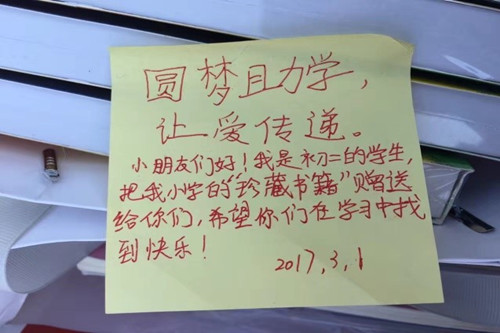 圆梦且力学，
让爱传递。
小朋友们好！我是初二的学生，
把我小学的“珍藏书籍”赠送
给你们，希望你们在学习中找
到快乐！
2017.3.1